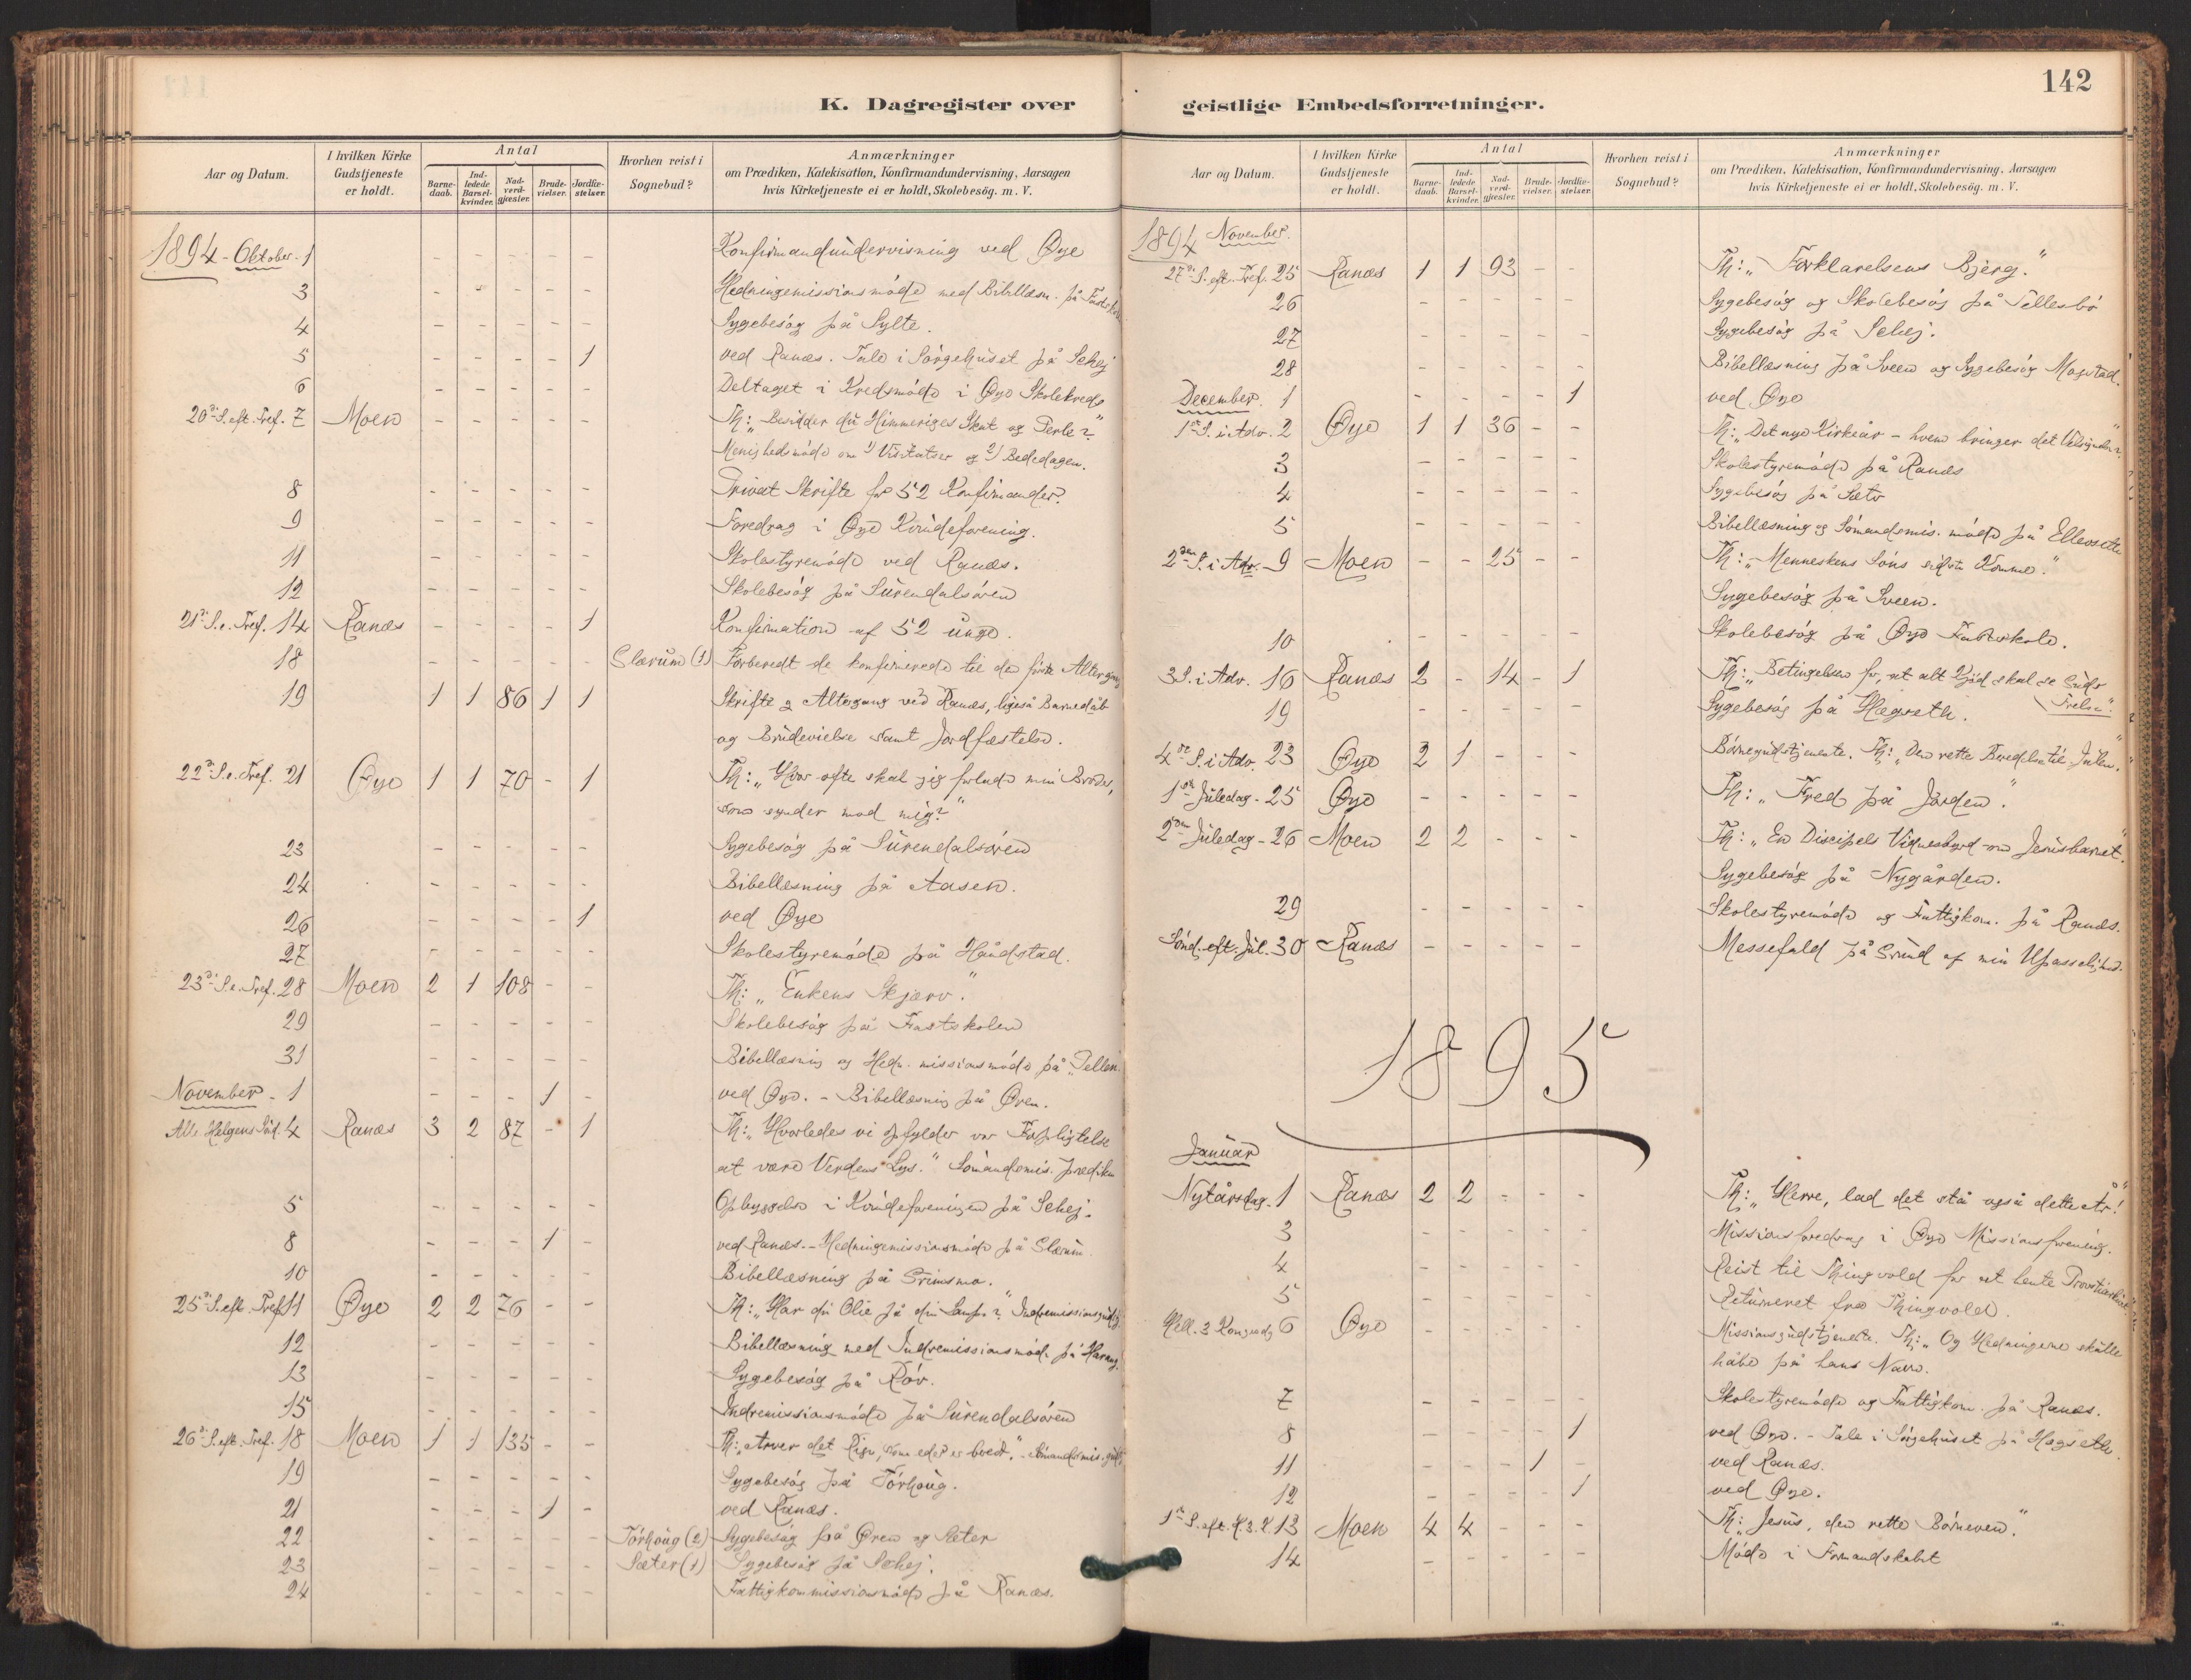 K. Dagregister over
Aar og Datum.
I hvilken Kirke Gudstjeneste er holdt.
Antal
Barne-daab.
Ind-ledede Barsel-kvinder.
Nad-verd-gjæster.
Brude-vielser.
Jordfæ-stelser.
Hvorhen reist i Sognebud?
Anmærkninger
om Prædiken, Katekisation, Konfirmandundervisning, Aarsagen
hvis Kirketjeneste ei er holdt, Skolebesög. m. V.
1894 - Oktober - 1 - - - - - Konfirmandundervisning ved Øye
3 - - - - - Hedningemissionsmöde med Bibellæsn. på
4 - - - - - Sygebesög på Sylte.
5 - - - - 1 ved Ranæs. Tale i Sörgehuset på Schej
6 - - - - - Deltaget i Kredsmöde i Øye Skolekreds
20de S. eft. Tref. 7 Moen - - - - - Th: „Besidder du Himmeriges Skat og Perle?"
Menighedsmöde om 1) Visitatser og 2) Bededagen.
8 - - - - - Privat Skrifte for 52 Konfirmander.
9 - - - - - Foredrag i Øye Kvindeforening.
11 - - - - - Skolestyremöde ved Ranæs.
12 - - - - - Skolebesög på Surendalsören
21de S. e. Tref. 14 Ranæs - - - - 1 Konfirmation af 52 unge.
18 - - - - - Glærum (1) Forberedt de konfirmerede til de förste Altergang
19 1 1 86 1 1 Skrifte & Altergang ved Ranæs, ligeså Barnedåb
og Brudevielse samt Jordfæstelse.
22de S. e. Tref. 21 Øye 1 1 70 - 1 Th: „Hvor ofte skal jeg forlade min Broder,
som synder mod mig?"
23 - - - - - Sygebesög på Surendalsören
24 - - - - - Bibellæsning på Aasen.
26 - - - - 1 ved Øye
27 - - - - - Skolestyremöde på Håndstad.
23de S. e. Tref. 28 Moen 2 1 108 - - Th: „Enkens Skjærv."
29 - - - - - Skolebesög på Fastskolen
31 - - - - - Bibellæsning og Hedn. missionsmöde på
November - 1 - - - 1 - ved Øye. - Bibellæsning på Øren.
Alle Helgens Sönd. 4 Ranæs 3 2 87 - 1 Th: „Hvorledes vi opfylder vor Forpligtelse
at være Verdens Lys." Sömandsmis. prædiken
5 - - - - - Opbyggelse i Kvindeforeningen på Schej.
8 - - - 1 - ved Ranæs. - Hedningemissionsmöde på Glærum.
10 - - - - - Bibellæsning på Grimsmo.
25de S. eft. Tref. 11 Øye 2 2 76 - - Th: „Har du Olie på din Lampe?"
12 - - - - - Bibellæsning med Indremissionsmöd. på Harang.
13 - - - - - Sygebesög på Röv.
15 - - - - - Indremissionsmöde på Surendalsören
26de S. eft. Tref. 18 Moen 1 1 135 - - Th: „Arver det Rige, som eder er beredt." - Sömandsmis.
19 - - - - - Sygebesög på Törhoug.
21 - - - 1 - ved Ranæs.
22 - - - - - Törhoug (2) Sygebesög på Øren og Sæter
23 - - - - - Sæter (1) Sygebesög på Schej.
24 - - - - - Fattigkommissionsmöde på Ranæs.
142
geistlige Embedsforretninger.
Aar og Datum.
I hvilken Kirke Gudstjeneste er holdt.
Antal
Barne-daab.
Ind-ledede Barsel-kvinder.
Nad-verd-gjæster.
Brude-vielser.
Jordfæ-stelser.
Hvorhen reist i Sognebud?
Anmærkninger
om Prædiken, Katekisation, Konfirmandundervisning, Aarsagen
hvis Kirketjeneste ei er holdt, Skolebesög. m. V.
1894 November.
27de S. eft. Tref. 25 Ranæs 1 1 93 - - Th: „Forklarelsens Bjerg."
26 - - - - - Sygebesög og Skolebesög på Tellesbö
27 - - - - - Sygebesög på Schej.
28 - - - - - Bibellæsning på Sveen og Sygebesög Mogstad.
December. 1 - - - - 1 ved Øye
1ste S. i Adv. 2 Øye 1 1 36 - - Th: „Det nye Kirkeår - hvem bringer det Velsignelse?"
3 - - - - - Skolestyremöde på Ranæs
4 - - - - - Sygebesög på Sæter
5 - - - - - Bibellæsning og Sömandsmis. möde på
2den S. i Adv. 9 Moen - - 25 - - Th: „Menneskens Söns sidste Komme."
Sygebesög på Sveen.
10 - - - - - Skolebesög på Øye Fastskole.
3 S. i Adv. 16 Ranæs 2 - 14 - 1 Th: „Betingelsen for, at alt Kjöd skal se Guds Frelse".
19 - - - - - Sygebesög på Hægseth.
4de S. i Adv. 23 Øye 2 1 - - - Börnegudstjeneste. Th: „Den rette Beredelse til Julen."
1ste Juledag - 25 Øye - - - - - Th: „Fred på Jorden".
2den Juledag - 26 Moen 2 2 - - - Th: „En Discipels Vidnesbyrd om Jesusbarnet."
Sygebesög på Nygården.
29 - - - - - Skolestyremöde og Fattigkom. på Ranæs.
Sönd. eft. Jul. 30 Ranæs - - - - - Messefald på Grund af min Upasselighed.
1895
Januar
Nytårsdag. 1 Ranæs 2 2 - - - Th: „Herre, lad det stå også dette År!"
3 - - - - - Missionsforedrag i Øye Missionsforening.
4 - - - - - Reist til Thingvold for at hente
5 - - - - - Returneret fra Thingvold.
Hell. 3 Kongedg 6 Øye - - - - - Missionsgudstjeneste. Th: „Og Hedningerne skulle
håbe på hans Navn.
7 - - - - - Skolestyremöde og Fattigkom. på Ranæs.
8 - - - - 1 ved Øye. - Tale i Sörgehuset på Hægseth.
11 - - - 1 - ved Ranæs.
12 - - - - 1 ved Øye.
1ste S. eft. H. 3. K. 13 Moen 4 4 - - - Th: „Jesus, den rette Börneven."
14 - - - - - Möde i Formandskabet